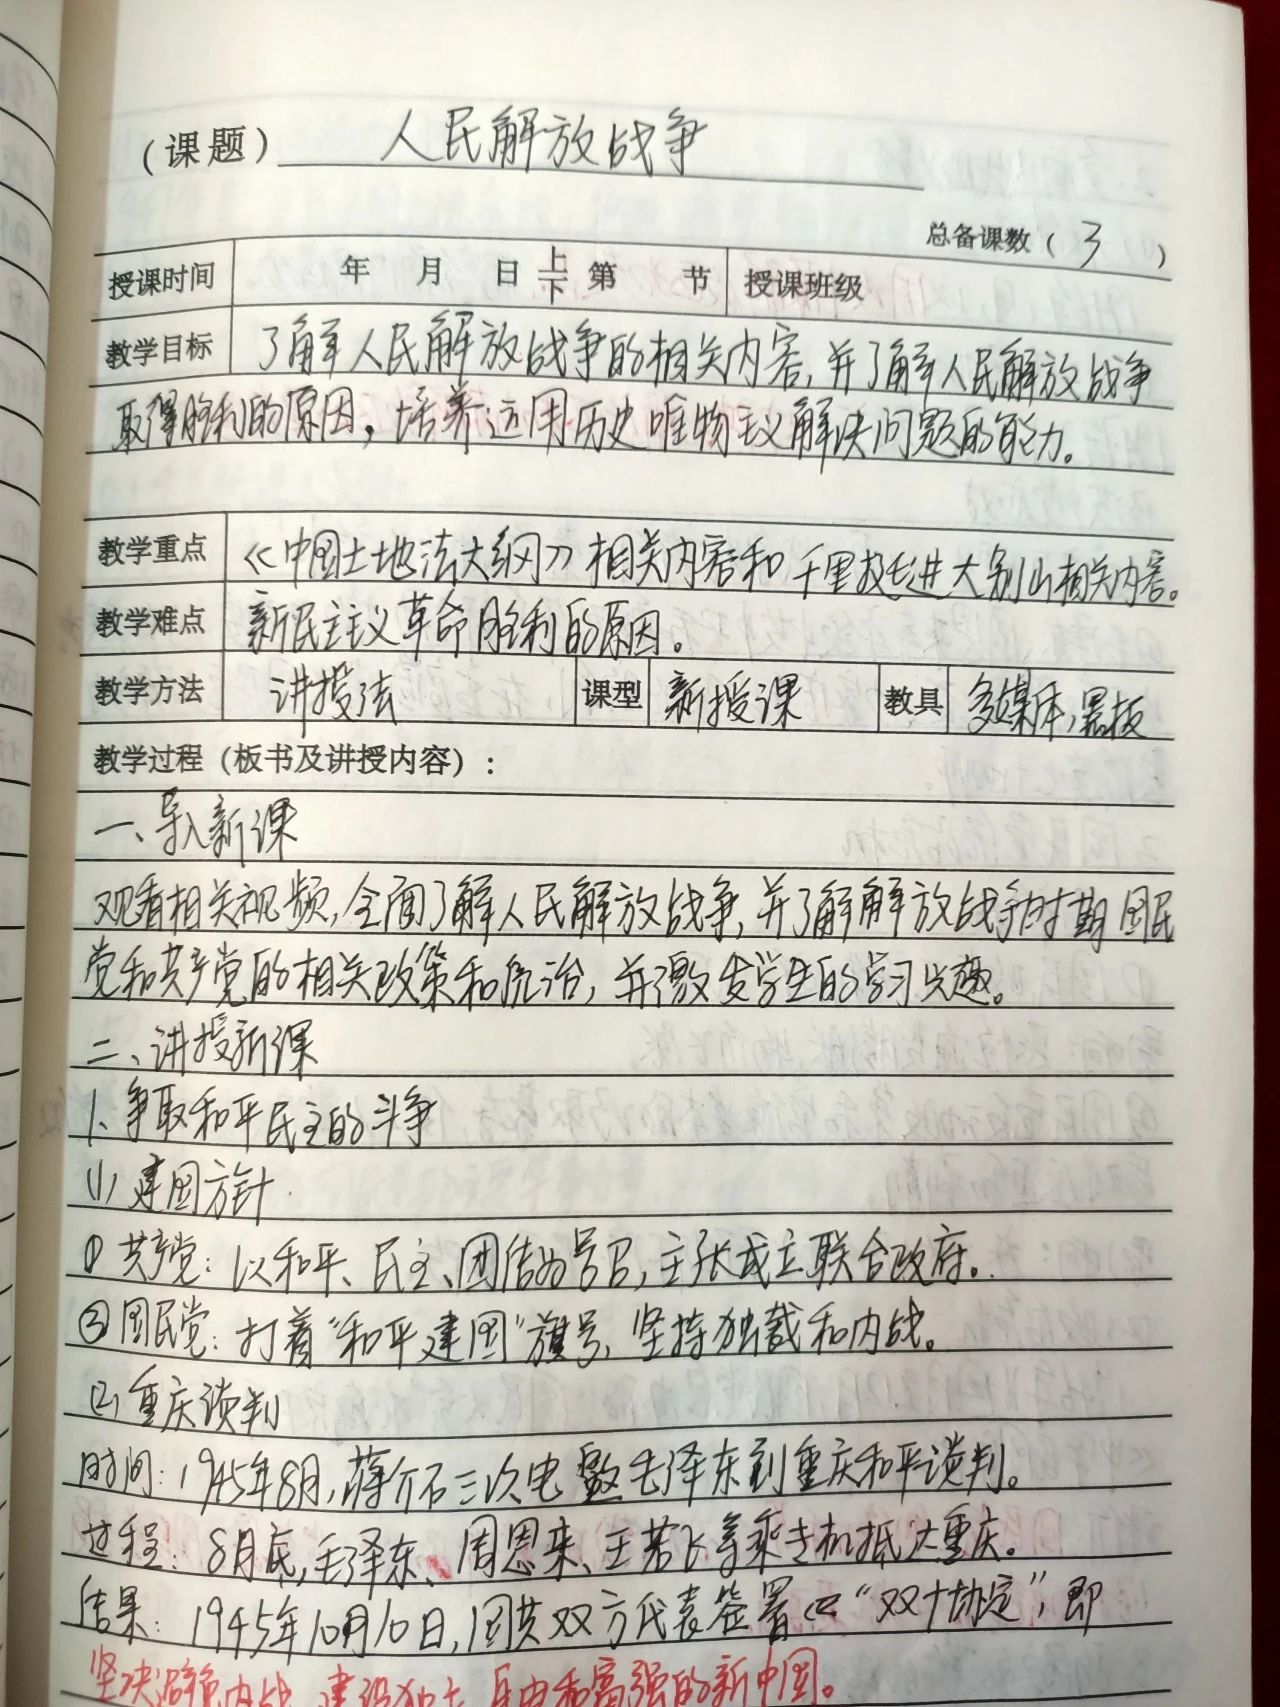 （课题） 人民解放战争
总备课数（ 3 ）
授课时间 年 月 日 上/下 第 节 授课班级
教学目标 了解人民解放战争的相关内容，并了解人民解放战争
取得胜利的原因，培养运用历史唯物主义解决问题的能力。
教学重点 《中国土地法大纲》相关内容和千里挺进大别山相关内容。
教学难点 新民主主义革命胜利的原因。
教学方法 讲授法 课型 新授课 教具 多媒体，黑板
教学过程（板书及讲授内容）：
一、导入新课
观看相关视频，全面了解人民解放战争，并了解解放战争时期国民
党和共产党的相关政策和统治，并激发学生的学习兴趣。
二、讲授新课
1、争取和平民主的斗争
(1) 建国方针
① 共产党：以和平、民主、团结为号召，主张成立联合政府。
② 国民党：打着“和平建国”旗号，坚持独裁和内战。
(2) 重庆谈判
时间：1945年8月，蒋介石三次电邀毛泽东到重庆和平谈判。
过程：8月底，毛泽东、周恩来、王若飞等乘专机抵达重庆。
结果：1945年10月10日，国共双方代表签署“双十协定”，即
坚决避免内战，建设独立、自由和富强的新中国。